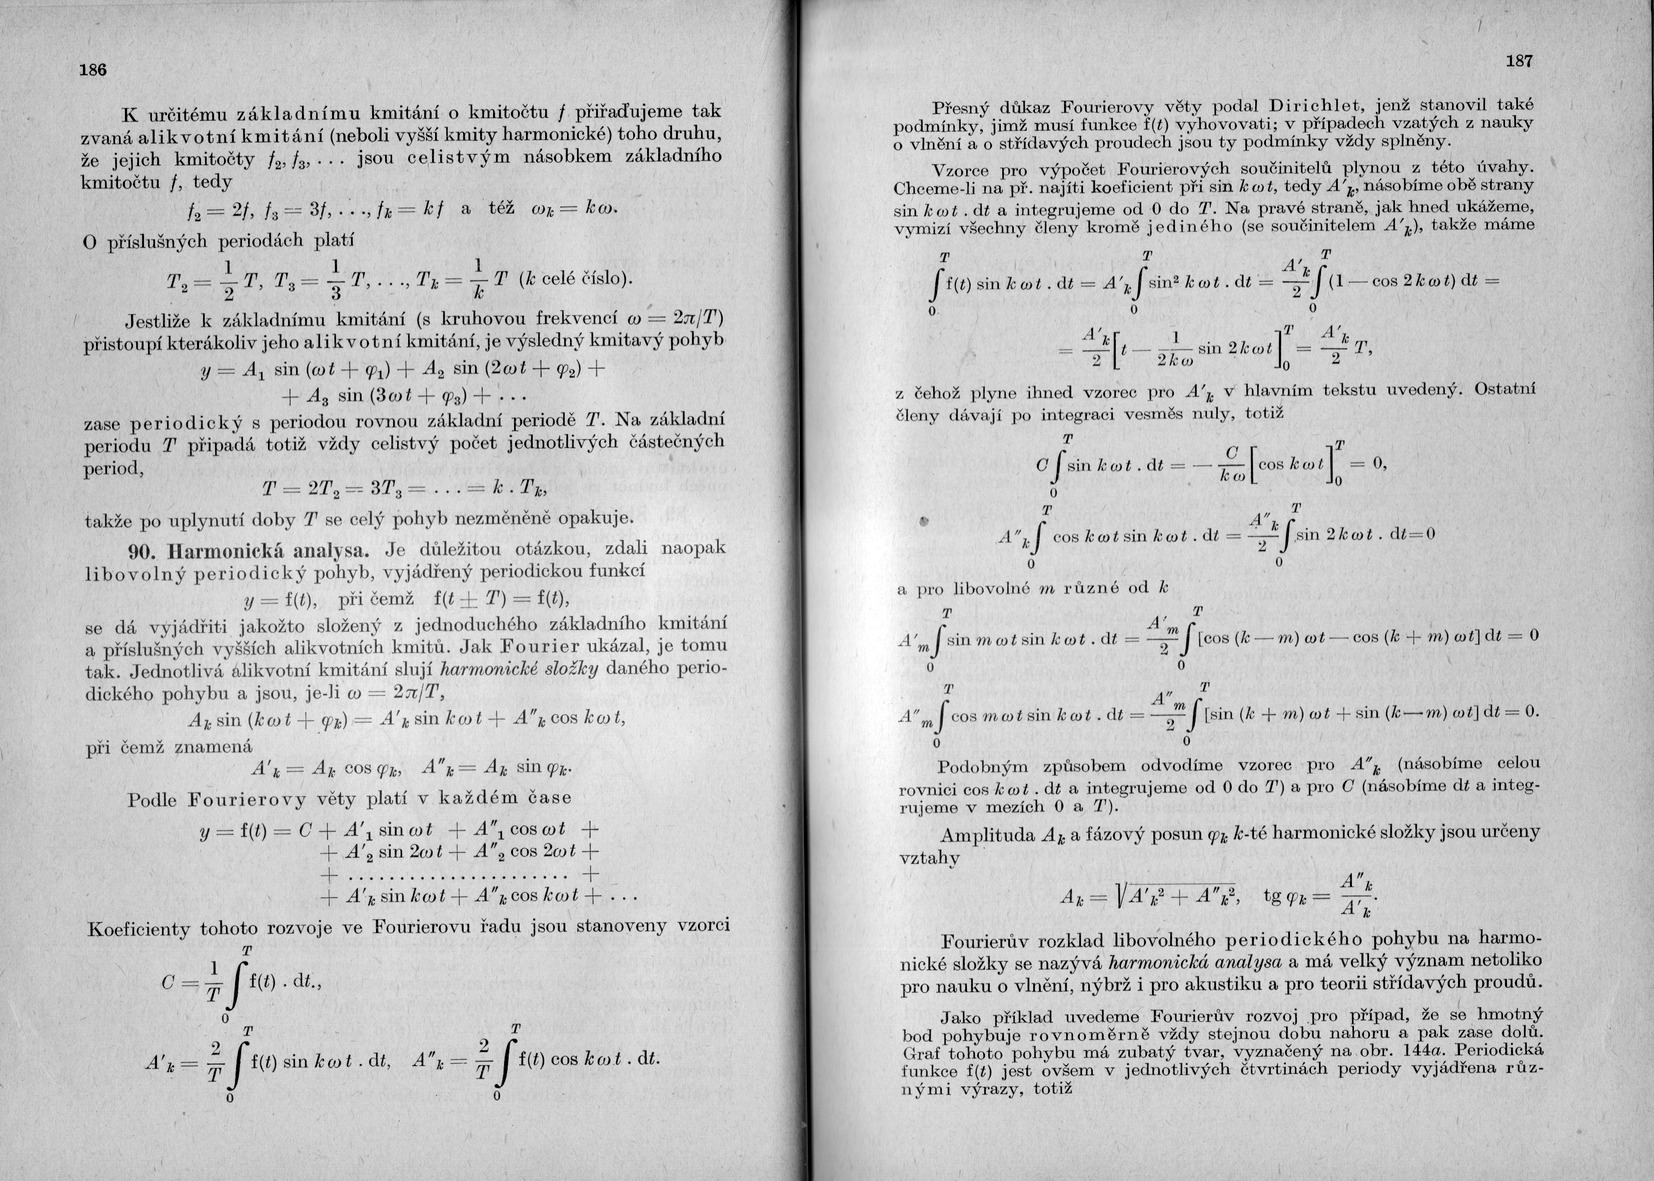 186
K určitému základnímu kmitání o kmitočtu f přiřaďujeme tak
zvaná alikvotní kmitání (neboli vyšší kmity harmonické) toho druhu,
že jejich kmitočty f₂, f₃, . . . jsou celistvým násobkem základního
kmitočtu f, tedy
f₂ = 2f, f₃ = 3f, . . ., fₖ = kf a též ωₖ = kω.
O příslušných periodách platí
T₂ = 1/2 T, T₃ = 1/3 T, . . ., Tₖ = 1/k T (k celé číslo).
Jestliže k základnímu kmitání (s kruhovou frekvencí ω = 2π/T)
přistoupí kterákoliv jeho alikvotní kmitání, je výsledný kmitavý pohyb
y = A₁ sin (ωt + φ₁) + A₂ sin (2ωt + φ₂) +
+ A₃ sin (3ωt + φ₃) + . . .
zase periodický s periodou rovnou základní periodě T. Na základní
periodu T připadá totiž vždy celistvý počet jednotlivých částečných
period,
T = 2T₂ = 3T₃ = . . . = k . Tₖ,
takže po uplynutí doby T se celý pohyb nezměněně opakuje.
90. Harmonická analysa. Je důležitou otázkou, zdali naopak
libovolný periodický pohyb, vyjádřený periodickou funkcí
y = f(t), při čemž f(t ± T) = f(t),
se dá vyjádřiti jakožto složený z jednoduchého základního kmitání
a příslušných vyšších alikvotních kmitů. Jak Fourier ukázal, je tomu
tak. Jednotlivá alikvotní kmitání slují harmonické složky daného perio-
dického pohybu a jsou, je-li ω = 2π/T,
Aₖ sin (kωt + φₖ) = A′ₖ sin kωt + A″ₖ cos kωt,
při čemž znamená
A′ₖ = Aₖ cos φₖ, A″ₖ = Aₖ sin φₖ.
Podle Fourierovy věty platí v každém čase
y = f(t) = C + A′₁ sin ωt + A″₁ cos ωt +
+ A′₂ sin 2ωt + A″₂ cos 2ωt +
+ . . . . . . . . . . . . . . . . . . . . . . +
+ A′ₖ sin kωt + A″ₖ cos kωt + . . .
Koeficienty tohoto rozvoje ve Fourierovu řadu jsou stanoveny vzorci
C = 1/T ∫₀ᵀ f(t) . dt.,
A′ₖ = 2/T ∫₀ᵀ f(t) sin kωt . dt, A″ₖ = 2/T ∫₀ᵀ f(t) cos kωt . dt.
187
Přesný důkaz Fourierovy věty podal Dirichlet, jenž stanovil také
podmínky, jimž musí funkce f(t) vyhovovati; v případech vzatých z nauky
o vlnění a o střídavých proudech jsou ty podmínky vždy splněny.
Vzorce pro výpočet Fourierových součinitelů plynou z této úvahy.
Chceme-li na př. najíti koeficient při sin kωt, tedy A′ₖ, násobíme obě strany
sin kωt . dt a integrujeme od 0 do T. Na pravé straně, jak hned ukážeme,
vymizí všechny členy kromě jediného (se součinitelem A′ₖ), takže máme
∫₀ᵀ f(t) sin kωt . dt = A′ₖ ∫₀ᵀ sin² kωt . dt = A′ₖ/2 ∫₀ᵀ (1 — cos 2kωt) dt =
= A′ₖ/2 [t — 1/2kω sin 2kωt]₀ᵀ = A′ₖ/2 T,
z čehož plyne ihned vzorec pro A′ₖ v hlavním tekstu uvedený. Ostatní
členy dávají po integraci vesměs nuly, totiž
C ∫₀ᵀ sin kωt . dt = — C/kω [cos kωt]₀ᵀ = 0,
A″ₖ ∫₀ᵀ cos kωt sin kωt . dt = A″ₖ/2 ∫₀ᵀ sin 2kωt . dt = 0
a pro libovolné m různé od k
A′ₘ ∫₀ᵀ sin mωt sin kωt . dt = A′ₘ/2 ∫₀ᵀ [cos (k — m) ωt — cos (k + m) ωt] dt = 0
A″ₘ ∫₀ᵀ cos mωt sin kωt . dt = A″ₘ/2 ∫₀ᵀ [sin (k + m) ωt + sin (k — m) ωt] dt = 0.
Podobným způsobem odvodíme vzorec pro A″ₖ (násobíme celou
rovnici cos kωt . dt a integrujeme od 0 do T) a pro C (násobíme dt a integ-
rujeme v mezích 0 a T).
Amplituda Aₖ a fázový posun φₖ k-té harmonické složky jsou určeny
vztahy
Aₖ = √(A′ₖ² + A″ₖ²), tg φₖ = A″ₖ/A′ₖ.
Fourierův rozklad libovolného periodického pohybu na harmo-
nické složky se nazývá harmonická analysa a má velký význam netoliko
pro nauku o vlnění, nýbrž i pro akustiku a pro teorii střídavých proudů.
Jako příklad uvedeme Fourierův rozvoj pro případ, že se hmotný
bod pohybuje rovnoměrně vždy stejnou dobu nahoru a pak zase dolů.
Graf tohoto pohybu má zubatý tvar, vyznačený na obr. 144a. Periodická
funkce f(t) jest ovšem v jednotlivých čtvrtinách periody vyjádřena růz-
nými výrazy, totiž